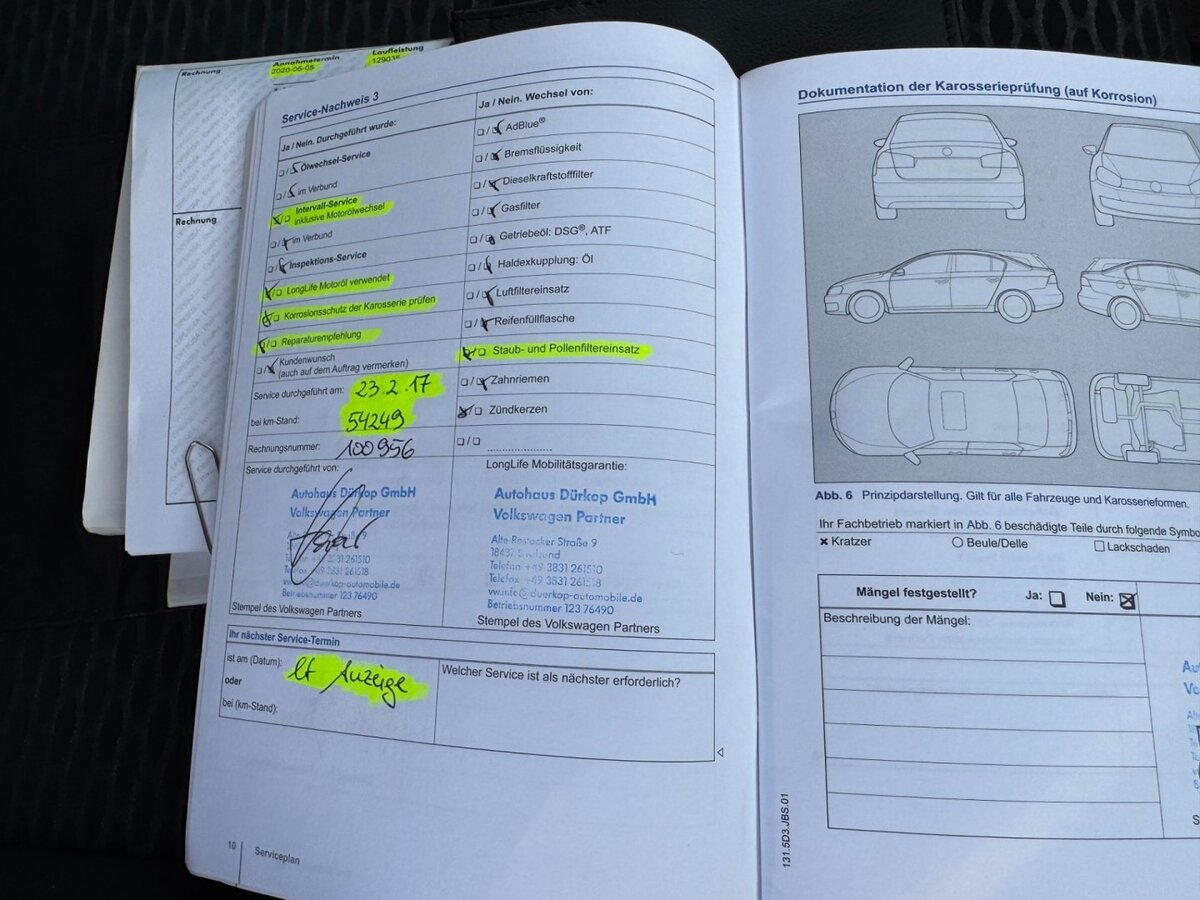 Rechnung
Annahmetermin
2020-05-05
Laufleistung
Rechnung
Service-Nachweis 3
Ja / Nein. Durchgeführt wurde:
❏/❏ Ölwechsel-Service
❏/❏ im Verbund
❏/❏ Intervall-Service
inklusive Motorölwechsel
❏/❏ im Verbund
❏/❏ Inspektions-Service
❏/❏ LongLife Motoröl verwendet
❏/❏ Korrosionsschutz der Karosserie prüfen
❏/❏ Reparaturempfehlung
❏/❏ Kundenwunsch
(auch auf dem Auftrag vermerken)
Service durchgeführt am: 23.2.17
bei km-Stand: 54249
Rechnungsnummer: 100956
Service durchgeführt von:
Autohaus Dürkop GmbH
Volkswagen Partner
Betriebsnummer 123 76490
Stempel des Volkswagen Partners
Ja / Nein. Wechsel von:
❏/❏ AdBlue®
❏/❏ Bremsflüssigkeit
❏/❏ Dieselkraftstofffilter
❏/❏ Gasfilter
❏/❏ Getriebeöl: DSG®, ATF
❏/❏ Haldexkupplung: Öl
❏/❏ Luftfiltereinsatz
❏/❏ Reifenfüllflasche
❏/❏ Staub- und Pollenfiltereinsatz
❏/❏ Zahnriemen
❏/❏ Zündkerzen
❏/❏
LongLife Mobilitätsgarantie:
Autohaus Dürkop GmbH
Volkswagen Partner
Alte Rostocker Straße 9
Telefon +49 3831 261510
Telefax +49 3831 261518
vw.info@duerkop-automobile.de
Betriebsnummer 123 76490
Stempel des Volkswagen Partners
Ihr nächster Service-Termin
ist am (Datum): lt Anzeige
oder
bei (km-Stand):
Welcher Service ist als nächster erforderlich?
10 Serviceplan
Dokumentation der Karosserieprüfung (auf Korrosion)
Abb. 6 Prinzipdarstellung. Gilt für alle Fahrzeuge und Karosserieformen.
Ihr Fachbetrieb markiert in Abb. 6 beschädigte Teile durch folgende Symbo
× Kratzer ○ Beule/Delle □ Lackschaden
Mängel festgestellt? Ja: ❏ Nein: ☒
Beschreibung der Mängel:
131.5D3.JBS.01